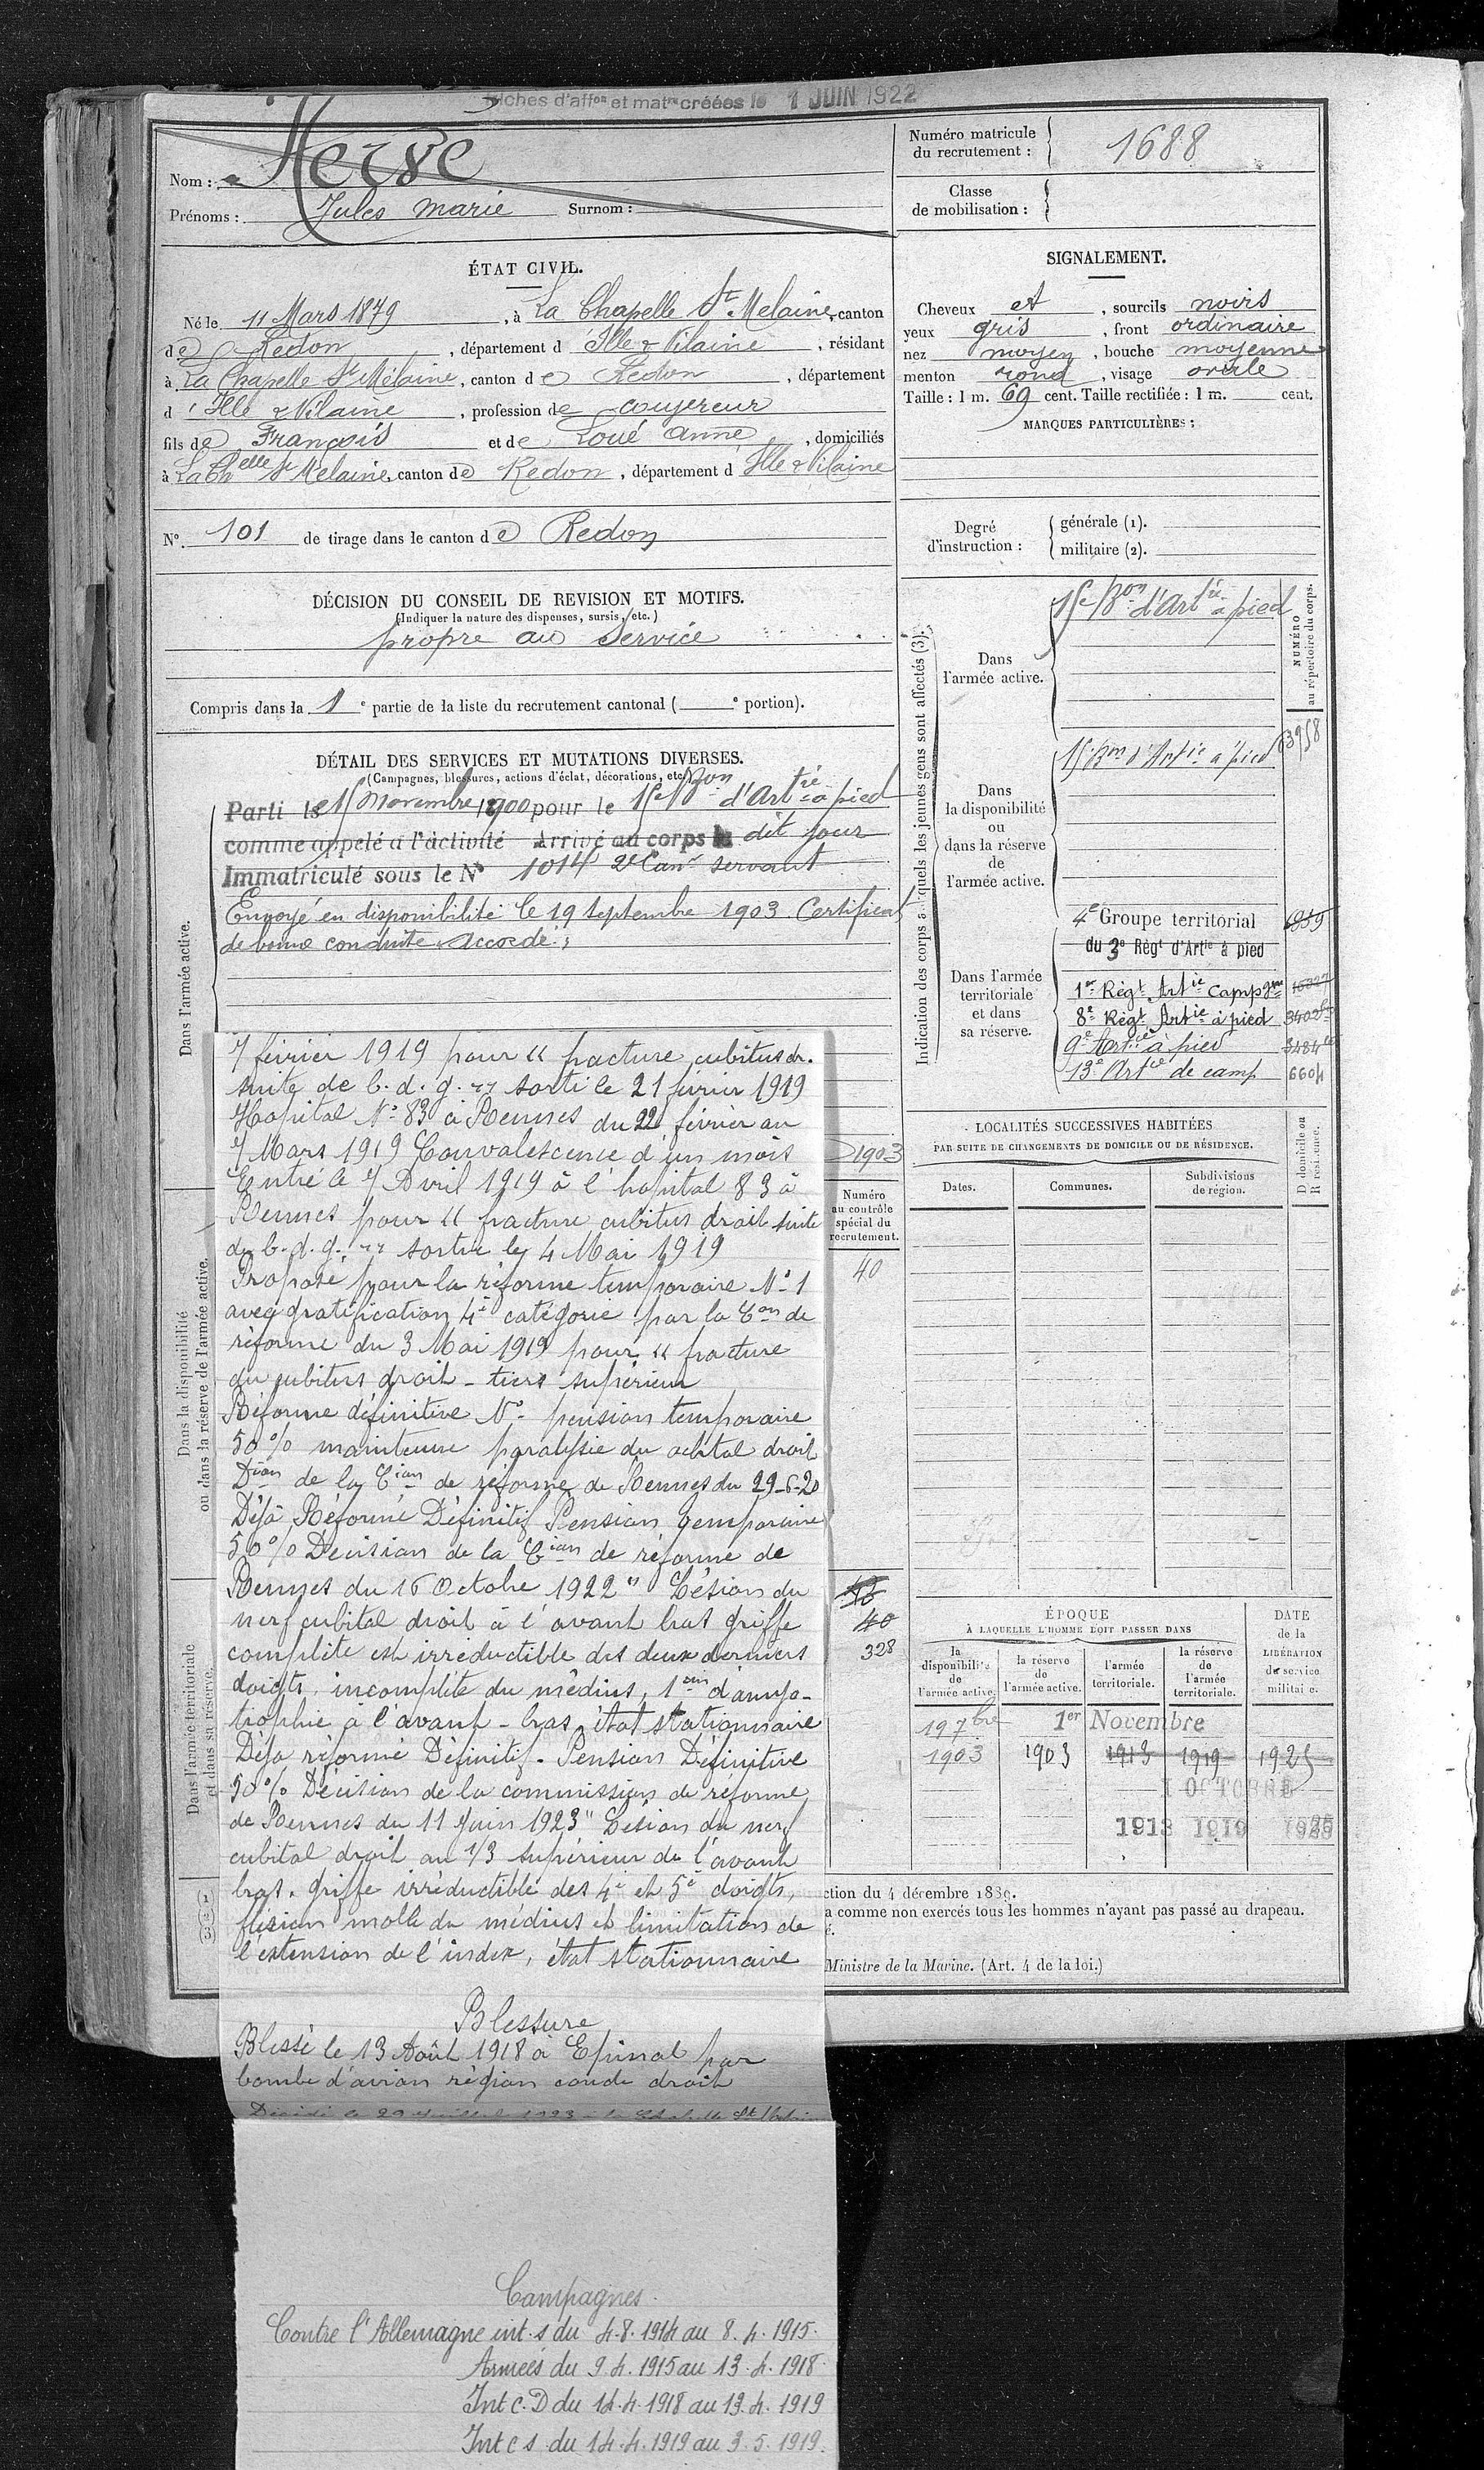 fiches d'affon et matre créées le 1 JUIN 1922
Nom : Hervé
Prénoms : Jules Marie Surnom :
Numéro matricule
du recrutement : 1688
Classe
de mobilisation :
ÉTAT CIVIL.
Né le 11 Mars 1879, à La Chapelle St Melaine, canton
de Redon, département d'Ille & Vilaine, résidant
à La Chapelle St Mélaine, canton de Redon, département
d'Ille & Vilaine, profession de
fils de François et de Loué Anne, domiciliés
à La Chelle St Melaine, canton de Redon, département d'Ille & Vilaine
No. 101 de tirage dans le canton de Redon
DÉCISION DU CONSEIL DE REVISION ET MOTIFS.
(Indiquer la nature des dispenses, sursis, etc.)
propre au service
Compris dans la 1e partie de la liste du recrutement cantonal ( e portion).
SIGNALEMENT.
Cheveux et, sourcils noirs
yeux gris, front ordinaire
nez moyen, bouche moyenne
menton rond, visage ovale
Taille : 1 m. 69 cent. Taille rectifiée : 1 m. cent.
MARQUES PARTICULIÈRES :
Degré
d'instruction :
générale (1).
militaire (2).
DÉTAIL DES SERVICES ET MUTATIONS DIVERSES.
(Campagnes, blessures, actions d'éclat, décorations, etc.)
Parti le 15 Novembre 1900 pour le 15e Bon d'Artrie à pied
comme appelé à l'activité Arrivé au corps le dit jour
Immatriculé sous le No 1014 2e Canr servant
Envoyé en disponibilité le 19 Septembre 1903 Certificat
de bonne conduite Accordé.
Dans l'armée active.
7 février 1919 pour "fracture cubitus dr.
suite de b. d. g. " sorti le 21 février 1919
Hopital No 83 à Rennes du 22 février au
7 Mars 1919 Convalescence d'un mois
Entré le 7 Avril 1919 à l'hopital 83 à
Rennes pour "fracture cubitus droit suite
de b. d. g. " sortie le 4 Mai 1919
Proposé pour la réforme temporaire No 1
avec gratification 4e catégorie par la Con de
réforme du 3 Mai 1919 pour "fracture
du cubitus droit - tiers supérieur
Réforme définitive No pension temporaire
50 % maintenue paralysie du droit
Dion de la Cion de réforme de Rennes du 29-6-20
Déjà Réformé Définitif Pension temporaire
50 % Décision de la Cion de réforme de
Rennes du 16 Octobre 1922 "Lésion du
nerf cubital droit à l'avant bras griffe
complète est irréductible des deux derniers
doigts, incomplète du médius, 1cm d'amyo-
trophie à l'avant-bras, état stationnaire
Déjà réformé Définitif. Pension Définitive
50 % Décision de la commission de réforme
de Rennes du 11 Juin 1923 "Lésion du nerf
cubital droit au 1/3 supérieur de l'avant
bras. griffe irréductible des 4e et 5e doigts,
flexion molle du médius et limitation de
l'extension de l'index, état stationnaire
Blessure
Blessé le 13 Août 1918 à Epinal par
bombe d'avion région coude droit
Campagnes.
Contre l'Allemagne int. s du 4.8.1914 au 8.4.1915.
Armées du 9.4.1915 au 13.4.1918
Int C.D du 14.4.1918 au 13.4.1919
Int C S du 14.4.1919 au 3.5.1919.
Dans la disponibilité
ou dans la réserve de l'armée active.
Dans l'armée territoriale
et dans sa réserve.
(1)
(2)
(3)
1903
Numéro
au contrôle
spécial du
recrutement.
40
40
328
Indication des corps auxquels les jeunes gens sont affectés (3).
NUMÉRO
au répertoire du corps.
Dans
l'armée active.
15e Bon d'Artrie à pied
Dans
la disponibilité
ou
dans la réserve
de
l'armée active.
15e Bon d'Artie à pied 63958
Dans l'armée
territoriale
et dans
sa réserve.
4e Groupe territorial
du 3e Régt d'Artie à pied
1er Régt Artie Campgne
8e Régt Artie à pied
9e Artie à pied
13e Artie de camp 6604
LOCALITÉS SUCCESSIVES HABITÉES
PAR SUITE DE CHANGEMENTS DE DOMICILE OU DE RÉSIDENCE.
Dates.
Communes.
Subdivisions
de région.
D domicile ou
R résidence.
ÉPOQUE
À LAQUELLE L'HOMME DOIT PASSER DANS
la
disponibilité
de
l'armée active.
la réserve
de
l'armée active.
l'armée
territoriale.
la réserve
de
l'armée
territoriale.
DATE
de la
LIBÉRATION
du service
militaire.
19 7bre 1er Novembre
1903 1903 1913 1919 1925
1 OCTOBRE
1913 1919
ction du 4 décembre 1889.
a comme non exercés tous les hommes n'ayant pas passé au drapeau.
é.
Ministre de la Marine. (Art. 4 de la loi.)